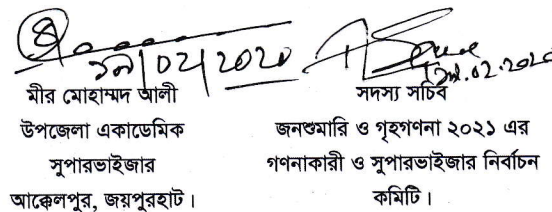 মীর মোহাম্মদ আলী
উপজেলা একাডেমিক
সুপারভাইজার
আক্কেলপুর, জয়পুরহাট।
02.2020
সদস্য সচিব
জনশুমারি ও গৃহগণনা ২০২১ এর
গণনাকারী ও সুপারভাইজার নির্বাচন
কমিটি।